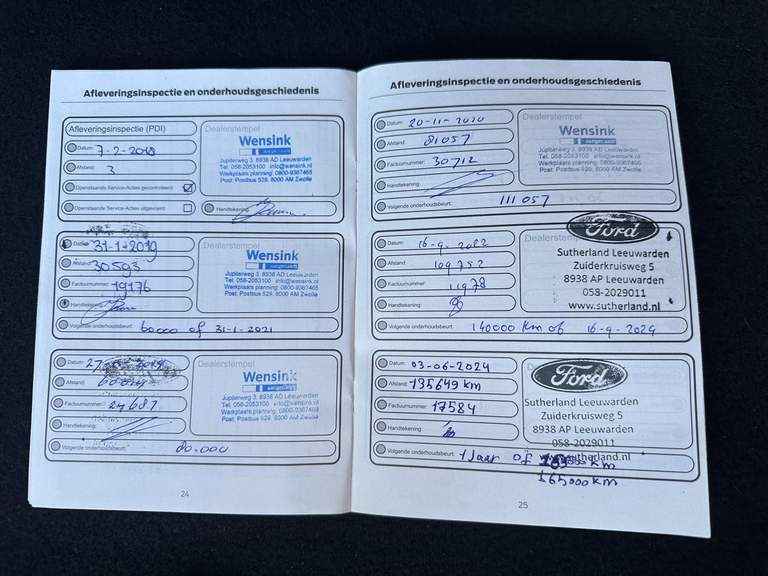 Afleveringsinspectie en onderhoudsgeschiedenis
Afleveringsinspectie (PDI)
Datum: 7-2-2018
Afstand: 3
Openstaande Service-Acties gecontroleerd:
Openstaande Service-Acties uitgevoerd:
Dealerstempel
Wensink
Jupiterweg 3, 8938 AD Leeuwarden
Tel. 058-2053100 info@wensink.nl
Werkplaats planning: 0800-9367465
Post: Postbus 529, 8000 AM Zwolle
Handtekening:
Datum: 31-1-2019
Afstand: 30593
Factuurnummer: 19176
Handtekening:
Dealerstempel
Wensink
Jupiterweg 3, 8938 AD Leeuwarden
Tel. 058-2053100 info@wensink.nl
Werkplaats planning: 0800-9367465
Post: Postbus 529, 8000 AM Zwolle
Volgende onderhoudsbeurt: 60000 of 31-1-2021
Datum: 27
Afstand:
Factuurnummer: 24687
Handtekening:
Dealerstempel
Wensink
Jupiterweg 3, 8938 AD Leeuwarden
Tel. 058-2053100 info@wensink.nl
Werkplaats planning: 0800-9367465
Post: Postbus 529, 8000 AM Zwolle
Volgende onderhoudsbeurt: 80.000
24
Afleveringsinspectie en onderhoudsgeschiedenis
Datum: 20-11-2020
Afstand: 81057
Factuurnummer: 30712
Handtekening:
Dealerstempel
Wensink
Jupiterweg 3, 8938 AD Leeuwarden
Tel. 058-2053100 info@wensink.nl
Werkplaats planning: 0800-9367465
Post: Postbus 529, 8000 AM Zwolle
Volgende onderhoudsbeurt: 111057
Datum: 16-9-2022
Afstand: 109752
Factuurnummer: 11978
Handtekening:
Dealerstempel
Ford
Sutherland Leeuwarden
Zuiderkruisweg 5
8938 AP Leeuwarden
058-2029011
www.sutherland.nl
Volgende onderhoudsbeurt: 140000 km of 16-9-2024
Datum: 03-06-2024
Afstand: 135649 km
Factuurnummer: 17584
Handtekening:
Dealerstempel
Ford
Sutherland Leeuwarden
Zuiderkruisweg 5
8938 AP Leeuwarden
058-2029011
www.sutherland.nl
Volgende onderhoudsbeurt: 1 Jaar of km
165000 km
25